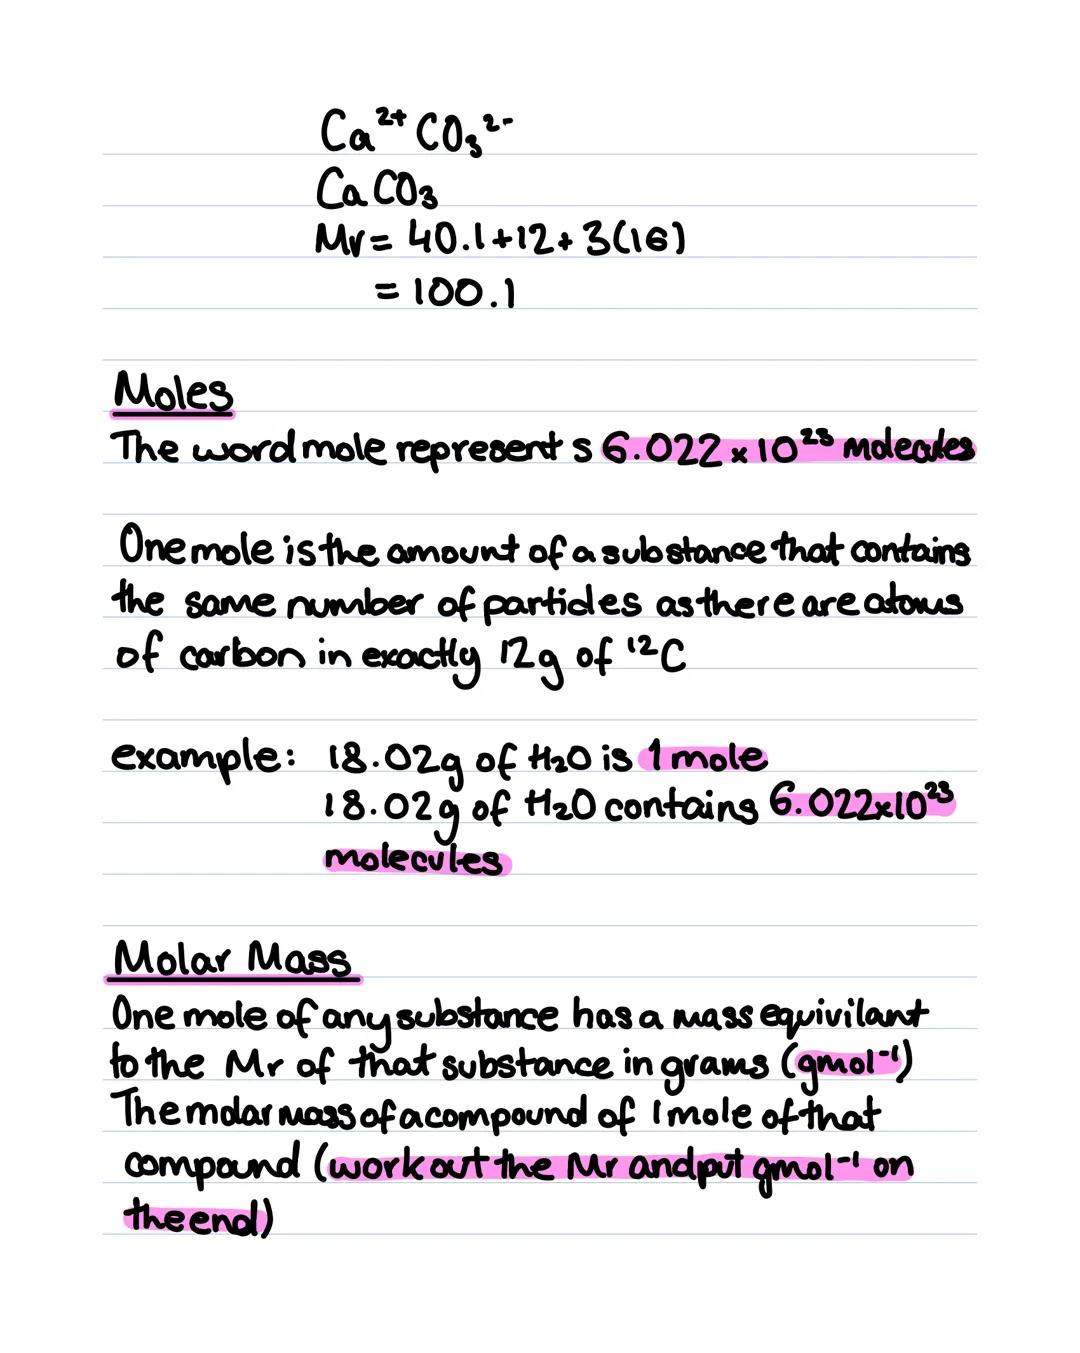 Ca²⁺ CO₃²⁻
CaCO₃
Mr = 40.1+12+3(16)
= 100.1
Moles
The word mole represents 6.022 x 10²³ molecules
One mole is the amount of a substance that contains
the same number of particles as there are atoms
of carbon in exactly 12g of ¹²C
example: 18.02g of H₂O is 1 mole
18.02g of H₂O contains 6.022x10²³
molecules
Molar Mass
One mole of any substance has a mass equivilant
to the Mr of that substance in grams (gmol⁻¹)
The molar mass of a compound of 1 mole of that
compound (work out the Mr and put gmol⁻¹ on
the end)